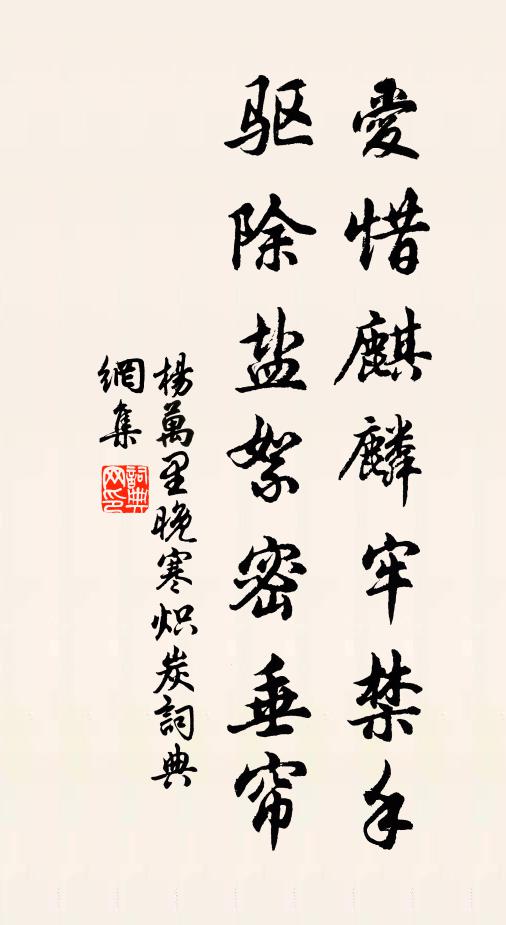 愛惜麒麟牢禁手
驱除盐絮密垂帘
楊萬里晚寒炽炭詞典
網集
詞典
网印